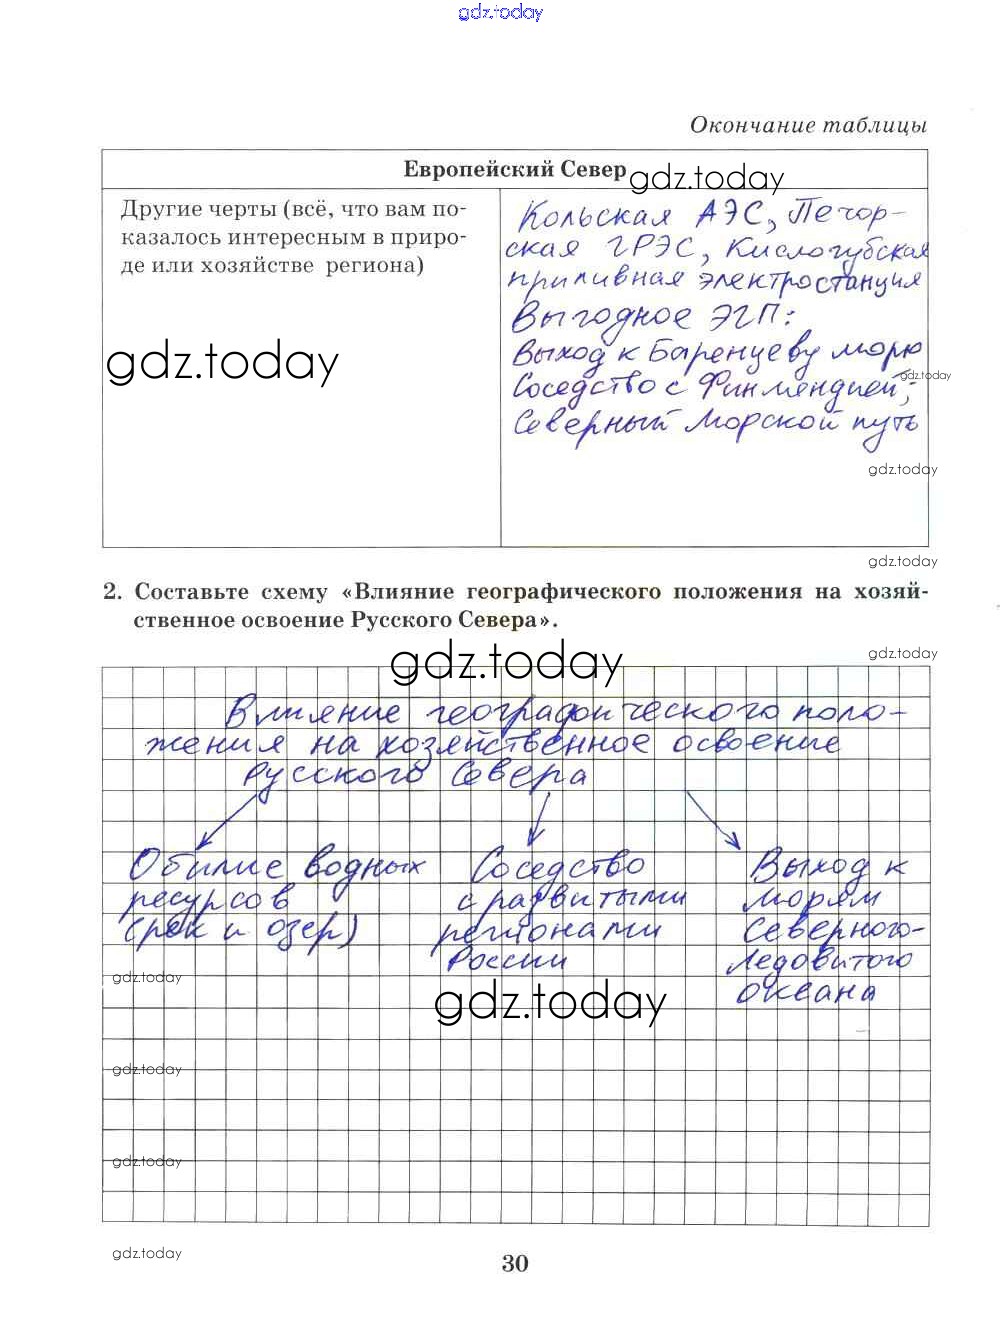 gdz.today
Окончание таблицы
Европейский Север
gdz.today
Другие черты (всё, что вам по-
казалось интересным в приро-
де или хозяйстве региона)
Кольская АЭС, Печор-
ская ГРЭС, Кислогубская
приливная электростанция
Выгодное ЭГП:
Выход к Баренцеву морю
Соседство с Финляндией;
Северный морской путь
gdz.today
gdz.today
gdz.today
gdz.today
2. Составьте схему «Влияние географического положения на хозяй-
ственное освоение Русского Севера».
gdz.today
gdz.today
Влияние географического поло-
жения на хозяйственное освоение
Русского Севера
Обилие водных
ресурсов
(рек и озер)
Соседство
с развитыми
регионами
России
Выход к
морям
Северного-
Ледовитого
океана
gdz.today
gdz.today
gdz.today
gdz.today
gdz.today
30